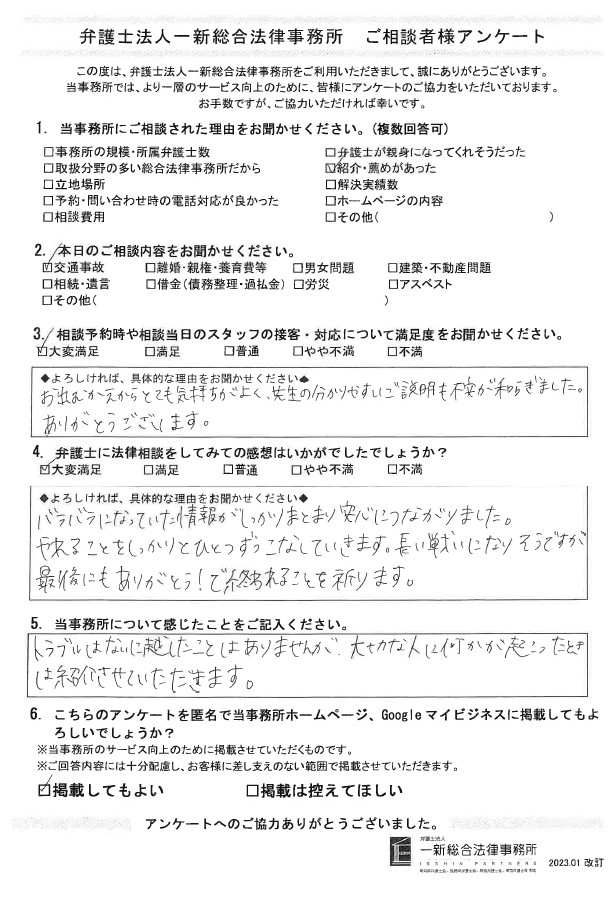 弁護士法人一新総合法律事務所　ご相談者様アンケート
この度は、弁護士法人一新総合法律事務所をご利用いただきまして、誠にありがとうございます。
当事務所では、より一層のサービス向上のために、皆様にアンケートのご協力をいただいております。
お手数ですが、ご協力いただければ幸いです。
1．当事務所にご相談された理由をお聞かせください。（複数回答可）
□事務所の規模・所属弁護士数　□弁護士が親身になってくれそうだった
□取扱分野の多い総合法律事務所だから　☑紹介・薦めがあった
□立地場所　□解決実績数
□予約・問い合わせ時の電話対応が良かった　□ホームページの内容
□相談費用　□その他（　）
2．本日のご相談内容をお聞かせください。
☑交通事故　□離婚・親権・養育費等　□男女問題　□建築・不動産問題
□相続・遺言　□借金（債務整理・過払金）　□労災　□アスベスト
□その他（　）
3．相談予約時や相談当日のスタッフの接客・対応について満足度をお聞かせください。
☑大変満足　□満足　□普通　□やや不満　□不満
◆よろしければ、具体的な理由をお聞かせください◆
お出むかえからとても気持ちがよく、先生の分かりやすいご説明も不安が和らぎました。
ありがとうございます。
4．弁護士に法律相談をしてみての感想はいかがでしたでしょうか？
☑大変満足　□満足　□普通　□やや不満　□不満
◆よろしければ、具体的な理由をお聞かせください◆
バラバラになっていた情報がしっかりまとまり安心につながりました。
やれることをしっかりとひとつずつこなしていきます。長い戦いになりそうですが
最後にもありがとう！で終われることを祈ります。
5．当事務所について感じたことをご記入ください。
トラブルはないに越したことはありませんが、大切な人に何かが起こったとき
は紹介させていただきます。
6．こちらのアンケートを匿名で当事務所ホームページ、Googleマイビジネスに掲載してもよ
ろしいでしょうか？
※当事務所のサービス向上のために掲載させていただくものです。
※ご回答内容には十分配慮し、お客様に差し支えのない範囲で掲載させていただきます。
☑掲載してもよい　□掲載は控えてほしい
アンケートへのご協力ありがとうございました。
弁護士法人
一新総合法律事務所
ISSHIN PARTNERS
2023.01 改訂